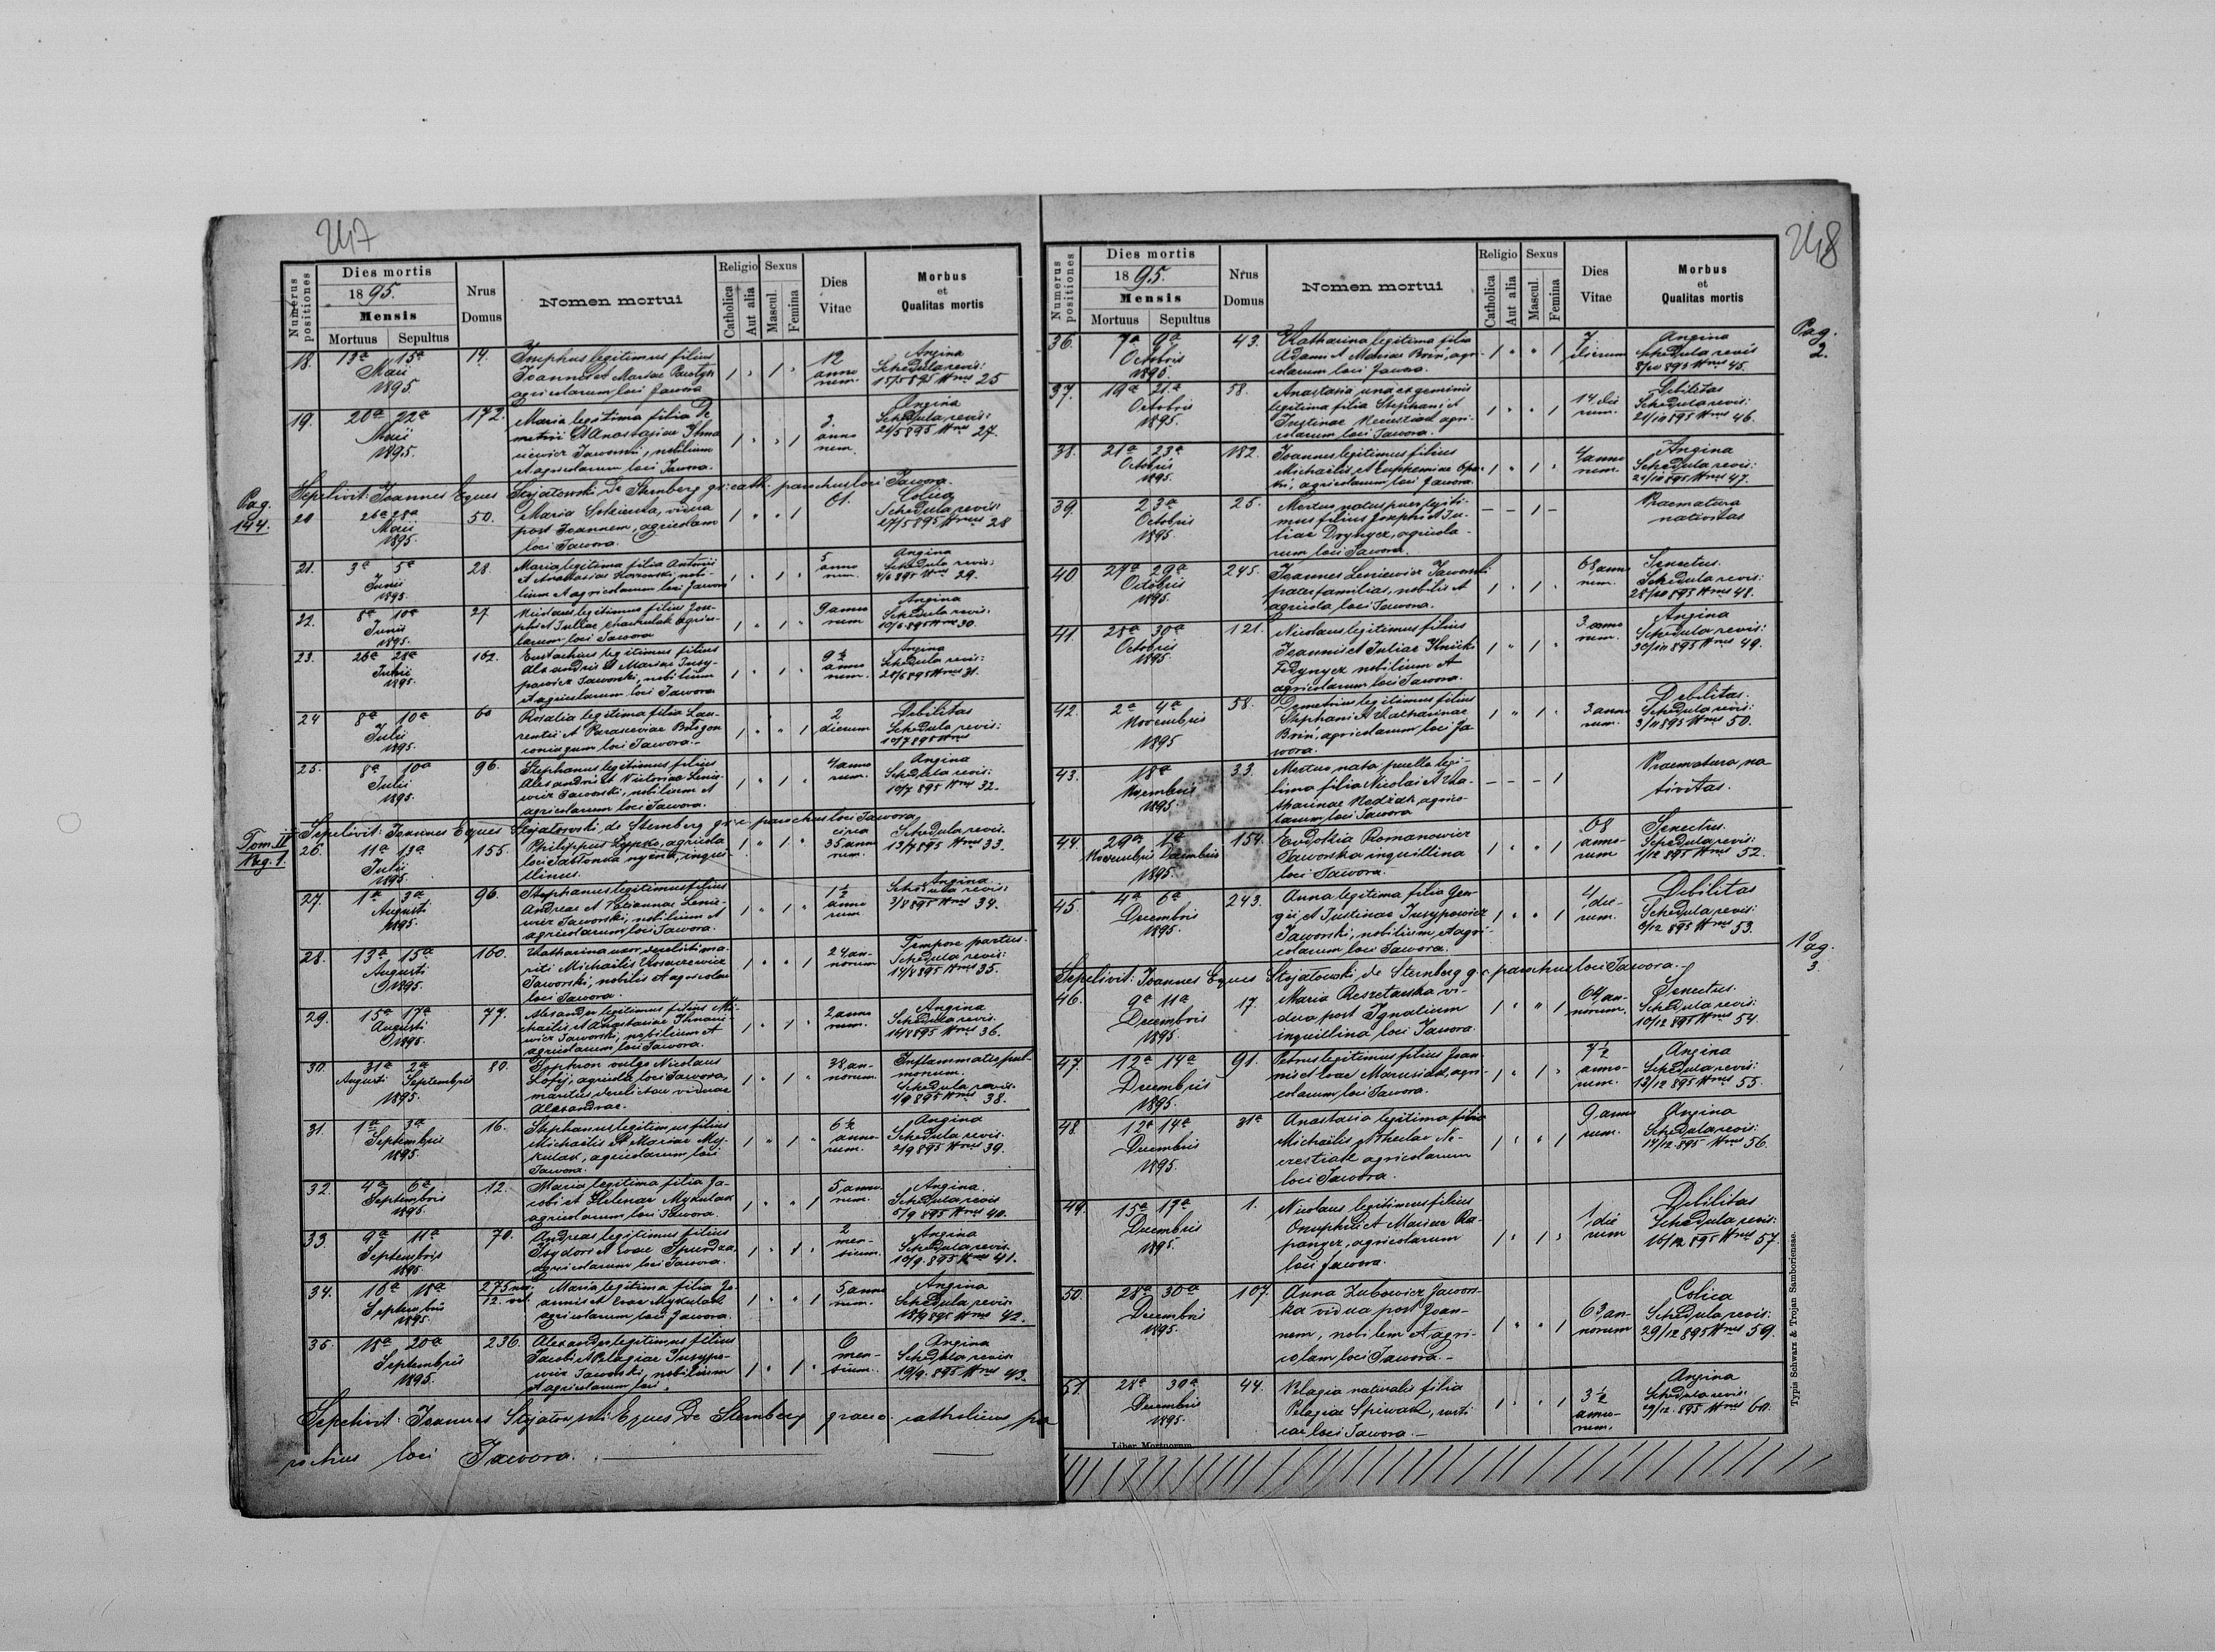 247
Numerus positiones
Dies mortis
1895.
Mensis
Mortuus Sepultus
Nrus Domus
Nomen mortui
Religio
Catholica
Aut alia
Sexus
Mascul.
Femina
Dies Vitae
Morbus
et
Qualitas mortis
18. 13a 15a Maii 1895 14.
Josephus legitimus filius
Joannis et Mariae
agricolarum loci Jawora
12 annorum.
Angina
Schedula revis:
15/5 895 Nrus 25
19. 20a 22a Maii 1895. 172.
Maria legitima filia De
metrii et Anastasiae Ilma
niewicz Jaworski, nobilium
et agricolarum loci Jawora.
3. annorum.
Angina
Schedula revis:
21/5 895 Nrus 27.
Sepelivit: Joannes Eques Stojałowski de Sternberg gr: cath. parochus loci Jawora.
Pag. 194.
20 26a 28a Maii 1895. 50.
Maria vidua
post Joannem, agricolam
loci Jawora.
61.
Colica
Schedula revis:
27/5 895 Nrus 28
21. 3a 5a Junii 1895. 28.
Maria legitima filia Antonii
et Anastasiae nobi-
lium et agricolarum loci Jawora
5 annorum.
Angina
Schedula revis:
4/6 895 Nrus 29.
22. 8a 10a Junii 1895. 27
Nicolaus legitimus filius Jose-
phi et Juliae agrico-
larum loci Jawora
9 annorum
Angina
Schedula revis.
10/6 895 Nrus 30.
23. 26a 28a Junii 1895. 162.
Eustachius legitimus filius
Alexandri et Mariae Jusy-
powicz Jaworski, nobilium
et agricolarum loci Jawora
9 1/2 annorum.
Angina
Schedula revis:
28/6 895 Nrus 31.
24 8a 10a Julii 1895. 60
Rosalia legitima filia Lau-
rentii et Parasceviae
loci Jawora.-
2 dierum
Debilitas
Schedula revis:
10/7 895 Nrus
25. 8a 10a Julii 1895. 96.
Stephanus legitimus filius
Alexandri et Victoriae Lenie-
wicz Jaworski, nobilium et
agricolarum loci Jawora.
4 annorum.
Angina
Schedula revis:
10/7 895 Nrus 32.
Sepelivit: Joannes Eques Stojałowski de Sternberg gr: c. parochus loci Jawora
Tom IV Pag. 1.
26. 11a 13a Julii 1895. 155.
Philippus Łyzko, agricola
loci Jabłonka inqui-
llinus.
circa 35 annorum.
Schedula revis.
13/7 895 Nrus 33.
27. 1a 3a Augusti 1895. 96.
Stephanus legitimus filius
Andreae et Lenie-
wicz Jaworski, nobilium et
agricolarum loci Jawora.
1 1/2 annorum
Angina
Schedula revis:
3/8 895 Nrus 34.
28. 13a 15a Augusti 1895. 160.
Katharina uxor derelicti ma-
riti Michaelis
Jaworski, nobilis et agricolae
loci Jawora.
24 annorum
Tempore partus.
Schedula revis:
14/8 895 Nrus 35.
29. 15a 17a Augusti 1895. 77.
Alexander legitimus filius Mi-
chaelis et Anastasiae Ilmanie-
wicz Jaworski, nobilium et
agricolarum loci Jawora.
2 annorum.
Angina
Schedula revis.
16/8 895 Nrus 36.
30. 31a 2a Augusti Septembris 1895. 80.
vulgo Nicolaus
agricola loci Jawora,
maritus derelictae viduae
Alexandrae.
38 annorum.
Inflammatio pul-
monum.
Schedula revis.
1/9 895 Nrus 38.
31. 1a 3a Septembris 1895. 16.
Stephanus legitimus filius
Michaelis et Mariae My-
kulak, agricolarum loci
Jawora.
6 1/2 annorum.
Angina
Schedula revis.
2/9 895 Nrus 39.
32. 4a 6a Septembris 1895. 12.
Maria legitima filia Ja-
cobi et Helenae Mykulak
agricolarum loci Jawora.
5 annorum.
Angina
Schedula revis
5/9 895 Nrus 40.
33. 9a 11a Septembris 1895. 70.
Andreas legitimus filius
Isydori et Evae
agricolarum loci Jawora.
2 mensium.
Angina
Schedula revis.
10/9 895 Nrus 41.
34. 16a 18a Septembris 1895. 275 nov. 12. vet.
Maria legitima filia Jo-
annis et Evae Mykulak
agricolarum loci Jawora.
5 annorum.
Angina
Schedula revis.
18/9 895 Nrus 42.
35. 18a 20a Septembris 1895. 236.
Alexander legitimus filius
Jacobi et Pelagiae Jusypo-
wicz Jaworski, nobilium
et agricolarum loci.
6 mensium.
Angina
Schedula revis
19/9 895 Nrus 43.
Sepelivit: Joannes Stojałowski Eques de Sternberg graeco. catholicus pa
rochus loci Jawora.
248
Numerus positiones
Dies mortis
1895.
Mensis
Mortuus Sepultus
Nrus Domus
Nomen mortui
Religio
Catholica
Aut alia
Sexus
Mascul.
Femina
Dies Vitae
Morbus
et
Qualitas mortis
Pag. 2.
36. 7a 9a Octobris 1895. 43.
Katharina legitima filia
Adami et Mariae Brin, agri-
colarum loci Jawora.
7 dierum
Angina
Schedula revis
8/10 895 Nrus 45.
37. 19a 21a Octobris 1895. 58.
Anastasia una ex geminis
legitima filia Stephani et
Justinae agri-
colarum loci Jawora.
14 dierum.
Debilitas
Schedula revis:
21/10 895 Nrus 46.
38. 21a 23a Octobris 1895. 182.
Joannes legitimus filius
Michaelis et Euphemiae
agricolarum loci Jawora.
4 annorum.
Angina
Schedula revis:
22/10 895 Nrus 47.
39. 23a Octobris 1895. 25.
Mortuus natus puer legiti-
mus filius Josephi et Ju-
liae agricola-
rum loci Jawora.
Praematura
nativitas
40 27a 29a Octobris 1895. 245.
Joannes Leniewicz Jaworski
paterfamilias, nobilis et
agricola loci Jawora.
68 annorum.
Senectus.
Schedula revis:
28/10 895 Nrus 48.
41. 28a 30a Octobris 1895. 121.
Nicolaus legitimus filius
Joannis et Juliae Ilnicki
nobilium et
agricolarum loci Jawora.
3 annorum.
Angina
Schedula revis:
30/10 895 Nrus 49.
42. 2a 4a Novembris 1895 58.
Demetrius legitimus filius
Stephani et Katharinae
Brin, agricolarum loci Ja
wora.
3 annorum.
Debilitas.
Schedula revis:
3/11 895 Nrus 50.
43. 18a Novembris 1895. 33.
Mortua nata puella legi-
tima filia Nicolai et Ka-
tharinae agrico-
larum loci Jawora
Praematura na-
tivitas.
44. 29a 1a Novembris Decembris 1895 154.
Eudokia Romanowicz
Jaworska inquillina
loci Jawora.
68 annorum
Senectus.
Schedula revis:
1/12 895 Nrus 52.
45. 4a 6a Decembris 1895. 243.
Anna legitima filia Geor-
gii et Justinae Jusypowicz
Jaworski, nobilium et agri-
colarum loci Jawora.
4 dierum.
Debilitas
Schedula revis:
6/12 895 Nrus 53.
Pag. 3.
Sepelivit: Joannes Eques Stojałowski de Sternberg g. c. parochus loci Jawora.
46. 9a 11a Decembris 1895. 17.
Maria Reszetarska vi-
dua post Ignatium
inquillina loci Jawora.
64 annorum.
Senectus.
Schedula revis:
10/12 895 Nrus 54.
47. 12a 14a Decembris 1895. 91.
Petrus legitimus filius Joan-
nis et Evae Marusiak, agri-
colarum loci Jawora.
7 1/2 annorum.
Angina
Schedula revis:
13/12 895 Nrus 55.
48. 12a 14a Decembris 1895. 31a
Anastasia legitima filia
Michaelis et Theclae
agricolarum
loci Jawora.
9 annorum.
Angina
Schedula revis:
14/12 895 Nrus 56.
49. 15a 17a Decembris 1895. 1.
Nicolaus legitimus filius
Onuphrii et Mariae
agricolarum
loci Jawora.
1 dierum
Debilitas
Schedula revis:
16/12 895 Nrus 57.
50. 28a 30a Decembris 1895. 107.
Anna Zubowicz Jawors-
ka vidua post Joan-
nem, nobilem et agri-
colam loci Jawora.-
63 annorum
Colica
Schedula revis:
29/12 895 Nrus 59.
51. 28a 30a Decembris 1895. 44.
Pelagia naturalis filia
Pelagiae Spiwak,
loci Jawora.-
3 1/2 annorum.
Angina
Schedula revis:
29/12 895 Nrus 60.
Liber Mortuorum
Typis Schwarz & Trojan Samboriensae.